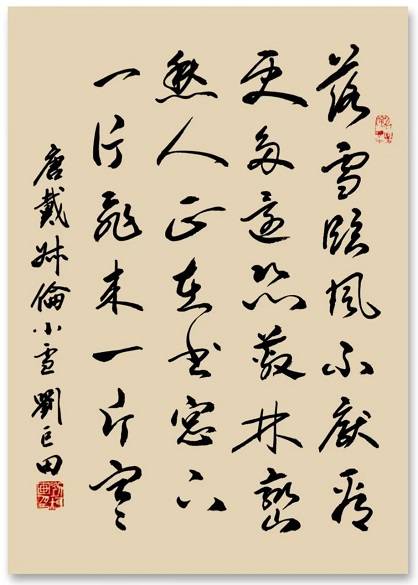 落雪臨風不厭看
更多還恐蔽林巒
愁人正在書窗下
一片飛來一片寒
唐戴叔倫小雪 劉田